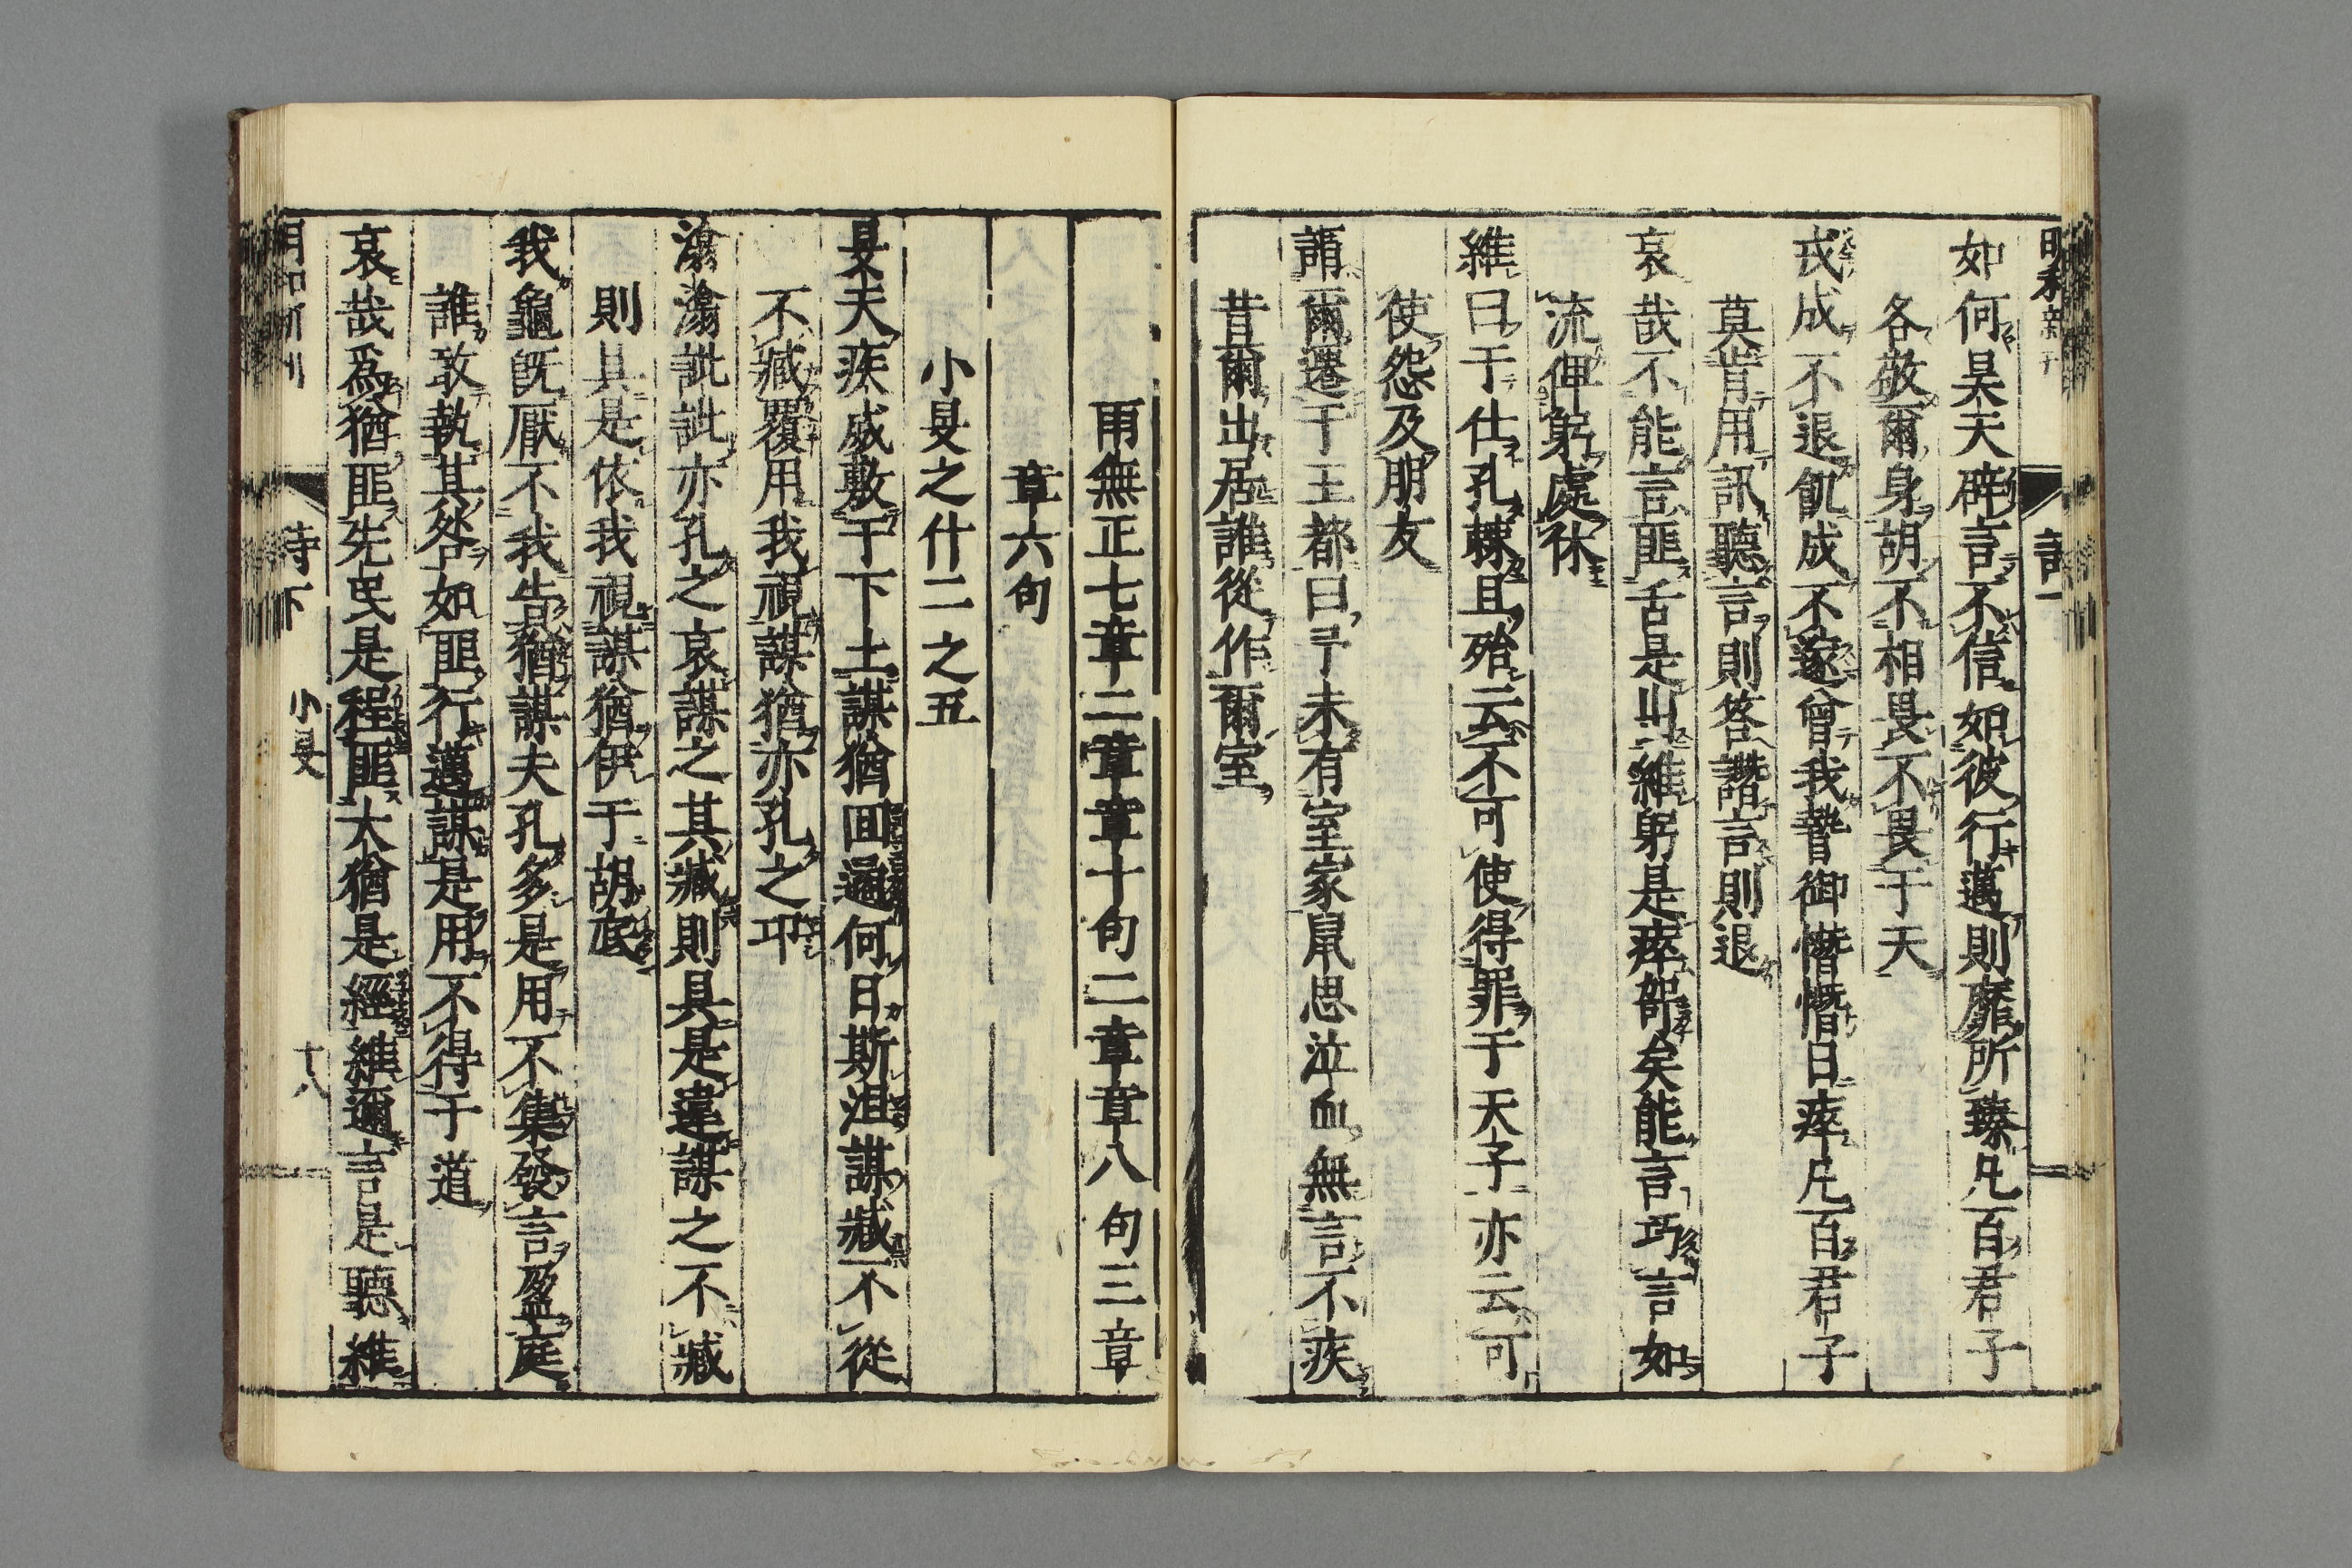 如何昊天辟言不信如彼行邁則靡所臻凡百君子
各敬爾身胡不相畏不畏于天
戎成不退飢成不遂曾我暬御憯憯日瘁凡百君子
莫肯用訊聽言則答譖言則退
哀哉不能言匪舌是出維躬是瘁哿矣能言巧言如
流俾躬處休
維曰于仕孔棘且殆云不可使得罪于天子亦云可
使怨及朋友
謂爾遷于王都曰予未有室家鼠思泣血無言不疾
昔爾出居誰從作爾室
雨無正七章二章章十句二章章八句三章
章六句
小旻之什二之五
旻天疾威敷于下土謀猶回遹何日斯沮謀臧不從
不臧覆用我視謀猶亦孔之邛
潝潝訿訿亦孔之哀謀之其臧則具是違謀之不臧
則具是依我視謀猶伊于胡底
我龜既厭不我告猶謀夫孔多是用不集發言盈庭
誰敢執其咎如匪行邁謀是用不得于道
哀哉爲猶匪先民是程匪大猶是經維邇言是聽維
詩下 小旻 十八